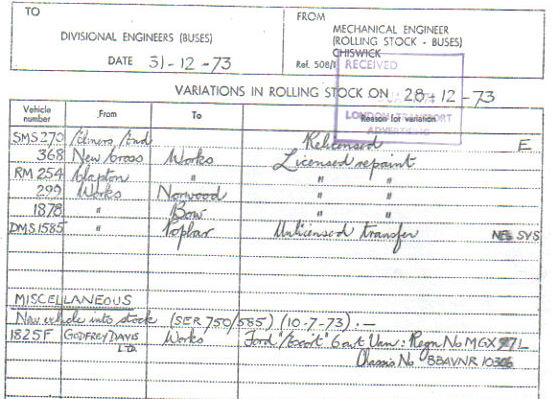 TO
DIVISIONAL ENGINEERS (BUSES)
DATE 31-12-73
FROM
MECHANICAL ENGINEER
(ROLLING STOCK - BUSES)
CHISWICK
Ref. 508/1 RECEIVED
VARIATIONS IN ROLLING STOCK ON 28-12-73
LONDON TRANSPORT
Vehicle number From To Reason for variation
SMS 270 Elmers End Relicensed E
368 New Cross Works Licensed repaint
RM 254 Clapton " " "
299 Works Norwood " "
1878 " Bow " "
DMS 1585 " Poplar Unlicensed transfer SYS
MISCELLANEOUS
New vehicle into stock (SER 750/585) (10-7-73) .—
1825F GODFREY DAVIS LTD Works Ford "Escort" 6cwt Van: Regn No MGX 97L
Chassis No BBAVNR